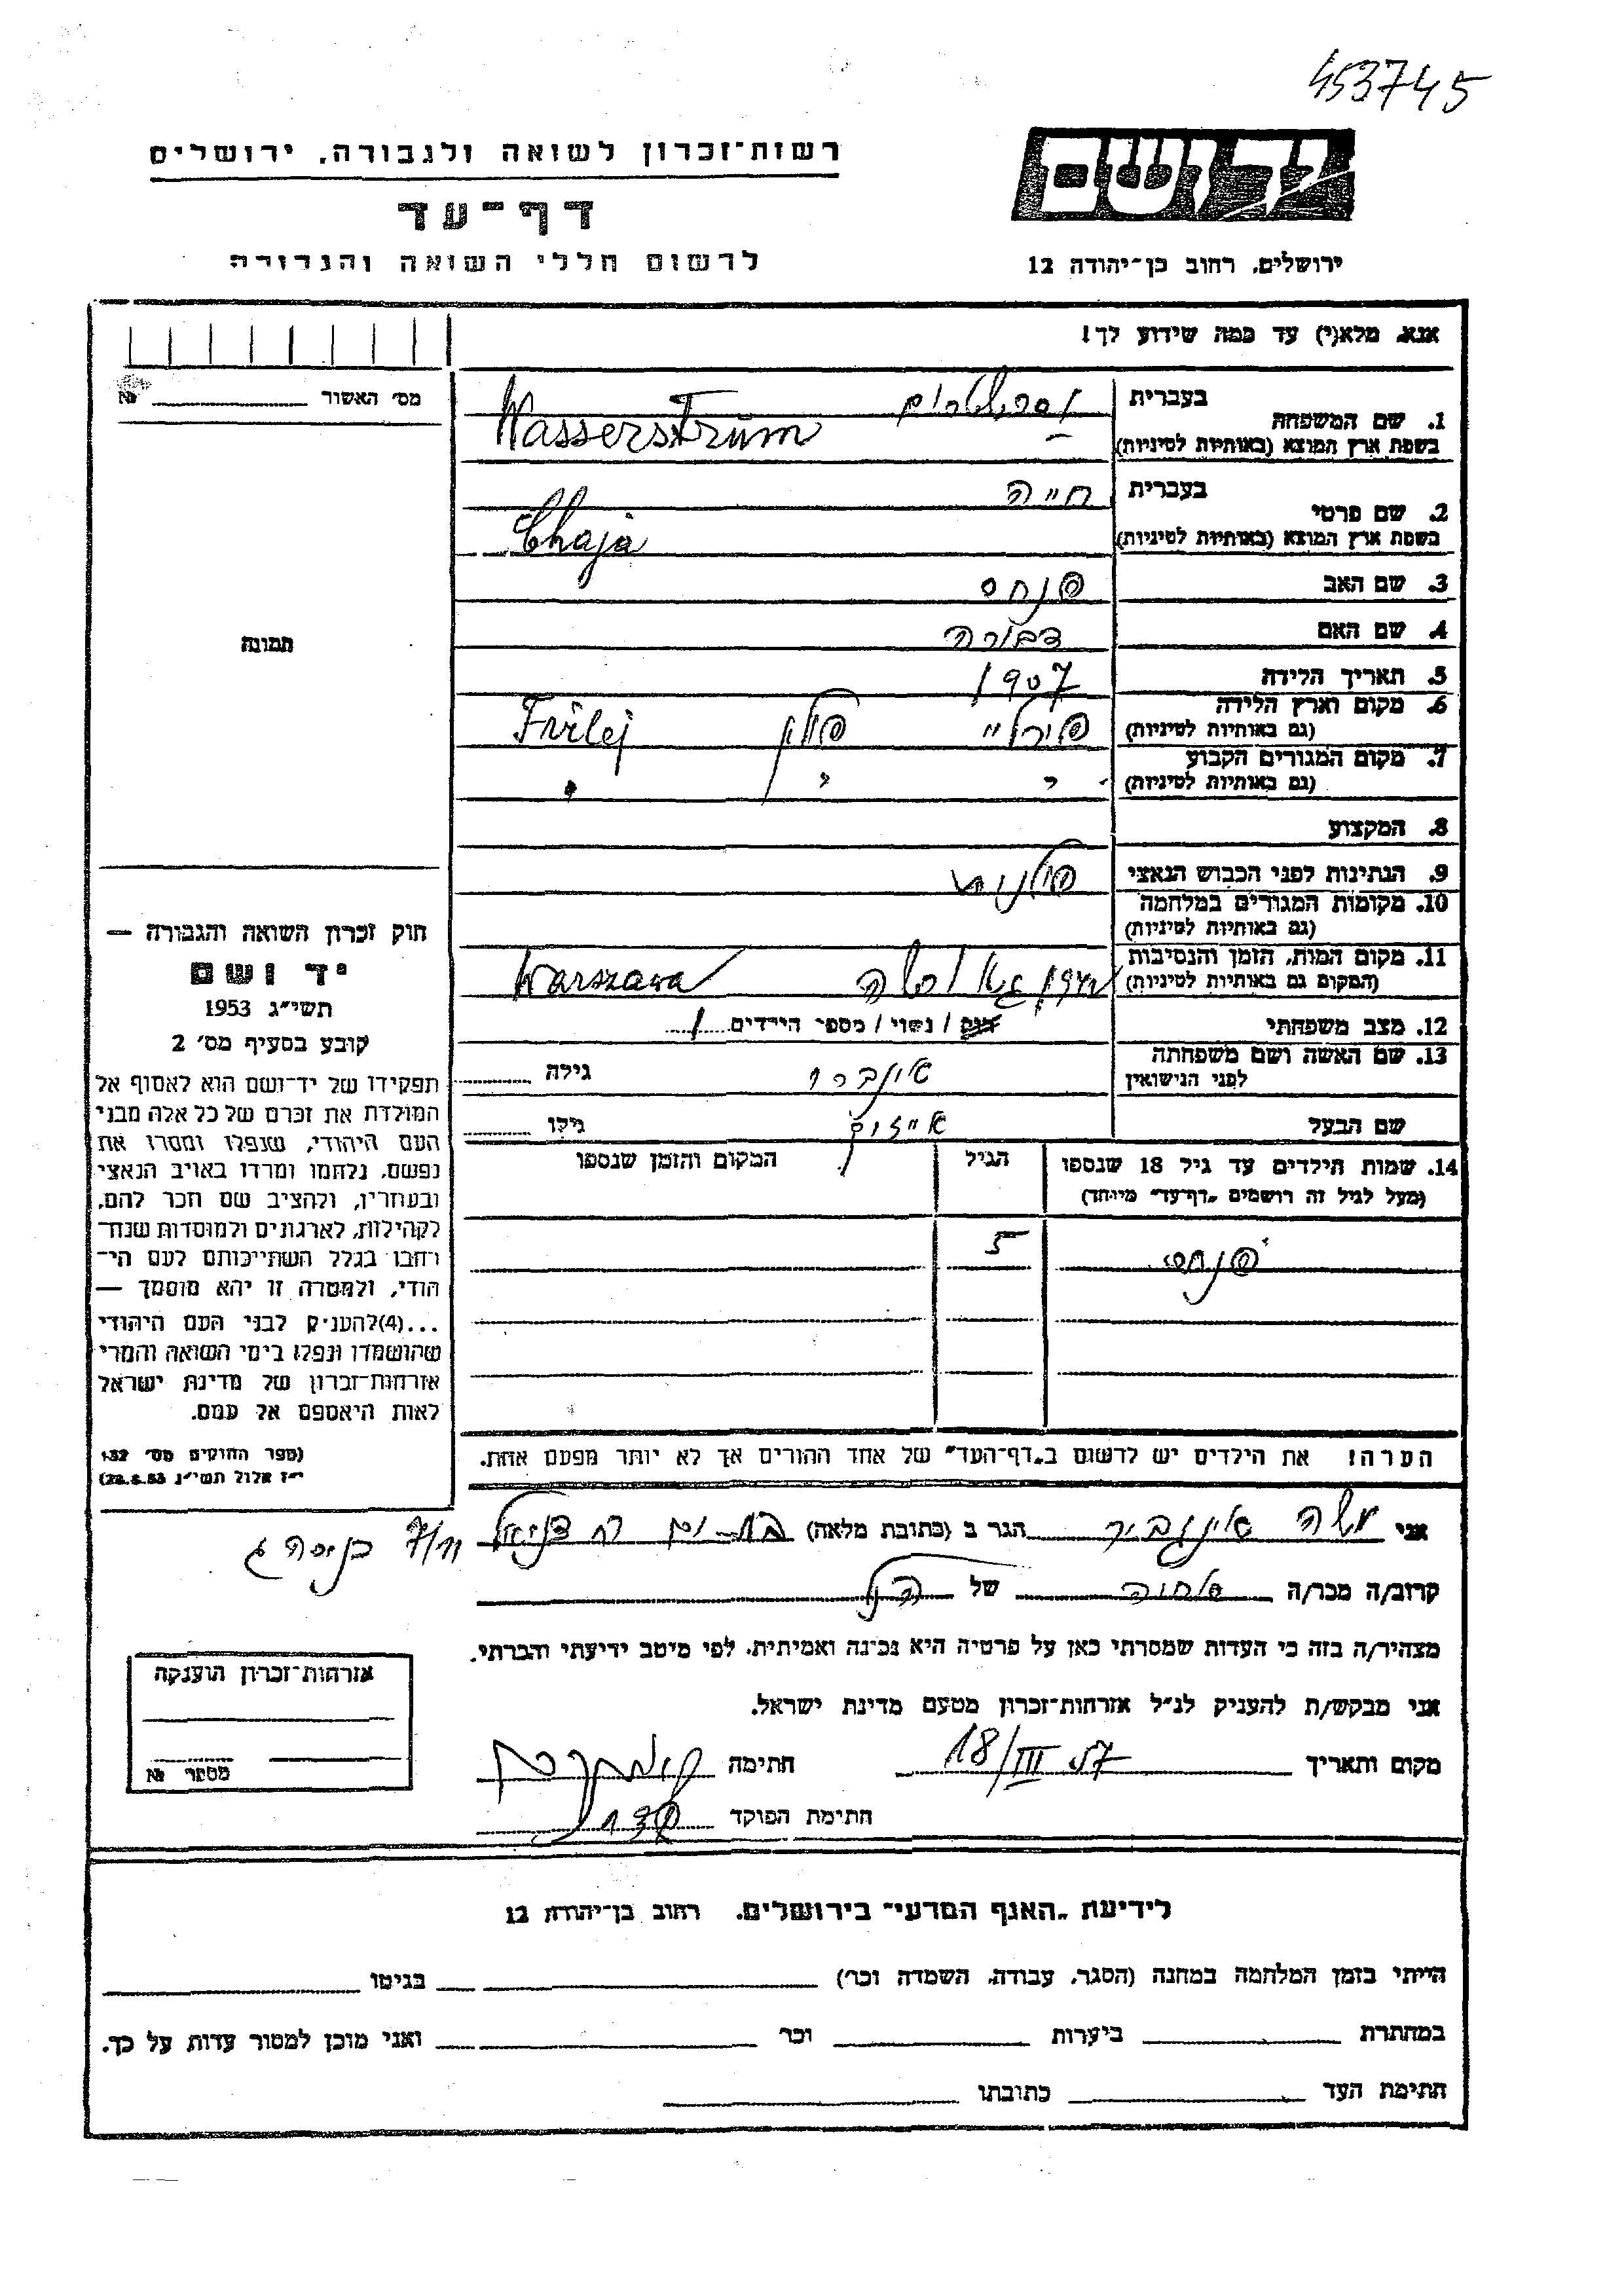 453745
יד ושם
רשות־זכרון לשואה ולגבורה, ירושלים
דף־עד
ירושלים, רחוב בן־יהודה 12
לרשום חללי השואה והגבורה
אנא, מלא(י) עד כמה שידוע לך!
מס׳ האשור № 
1. שם המשפחה
בעברית
בשפת ארץ המוצא (באותיות לטיניות)
Wasserstrum
2. שם פרטי
בעברית חייה
בשפת ארץ המוצא (באותיות לטיניות) Chaja
3. שם האב פנחס
4. שם האם דבורה
5. תאריך הלידה 1907
6. מקום וארץ הלידה
(גם באותיות לטיניות) פולין
7. מקום המגורים הקבוע
(גם באותיות לטיניות) " " "
8. המקצוע
9. הנתינות לפני הכבוש הנאצי פולנית
10. מקומות המגורים במלחמה
(גם באותיות לטיניות)
11. מקום המות, הזמן והנסיבות
(המקום גם באותיות לטיניות) Warszawa
12. מצב משפחתי רווק / נשוי / מספר הילדים 1
13. שם האשה ושם משפחתה
לפני הנישואין גילה
שם הבעל אייזיק גילו
14. שמות הילדים עד גיל 18 שנספו
(מעל לגיל זה רושמים „דף־עד״ מיוחד)
הגיל
המקום והזמן שנספו
פנחס 5
הערה! את הילדים יש לרשום ב„דף־העד״ של אחד ההורים אך לא יותר מפעם אחת.
תמונה
חוק זכרון השואה והגבורה —
יד ושם
תשי״ג 1953
קובע בסעיף מס׳ 2
תפקידו של יד־ושם הוא לאסוף אל
המולדת את זכרם של כל אלה מבני
העם היהודי, שנפלו ומסרו את
נפשם, נלחמו ומרדו באויב הנאצי
ובעוזריו, ולהציב שם וזכר להם,
לקהילות, לארגונים ולמוסדות שנח־
רחבו בגלל השתייכותם לעם הי־
הודי, ולמטרה זו יהא מוסמך —
...(4)להעניק לבני העם היהודי
שהושמדו ונפלו בימי השואה והמרי
אזרחות־זכרון של מדינת ישראל
לאות היאספם אל עמם.
(ספר החוקים מס׳ 132
י״ז אלול תשי״ג 28.8.53)
אני משה הגר ב (כתובת מלאה) בת-ים 7/11 כניסה ג
קרוב/ה מכר/ה של הנ״ל
מצהיר/ה בזה כי העדות שמסרתי כאן על פרטיה היא נכונה ואמיתית, לפי מיטב ידיעתי והכרתי.
אני מבקש/ת להעניק לנ״ל אזרחות־זכרון מטעם מדינת ישראל.
מקום ותאריך 18/III 57 חתימה
חתימת הפוקד
אזרחות־זכרון הוענקה
מספר №
לידיעת „האגף המדעי״ בירושלים, רחוב בן־יהודה 12
הייתי בזמן המלחמה במחנה (הסגר, עבודה, השמדה וכר׳) בגיטו
במחתרת ביערות וכר ואני מוכן למסור עדות על כך.
חתימת העד כתובתו